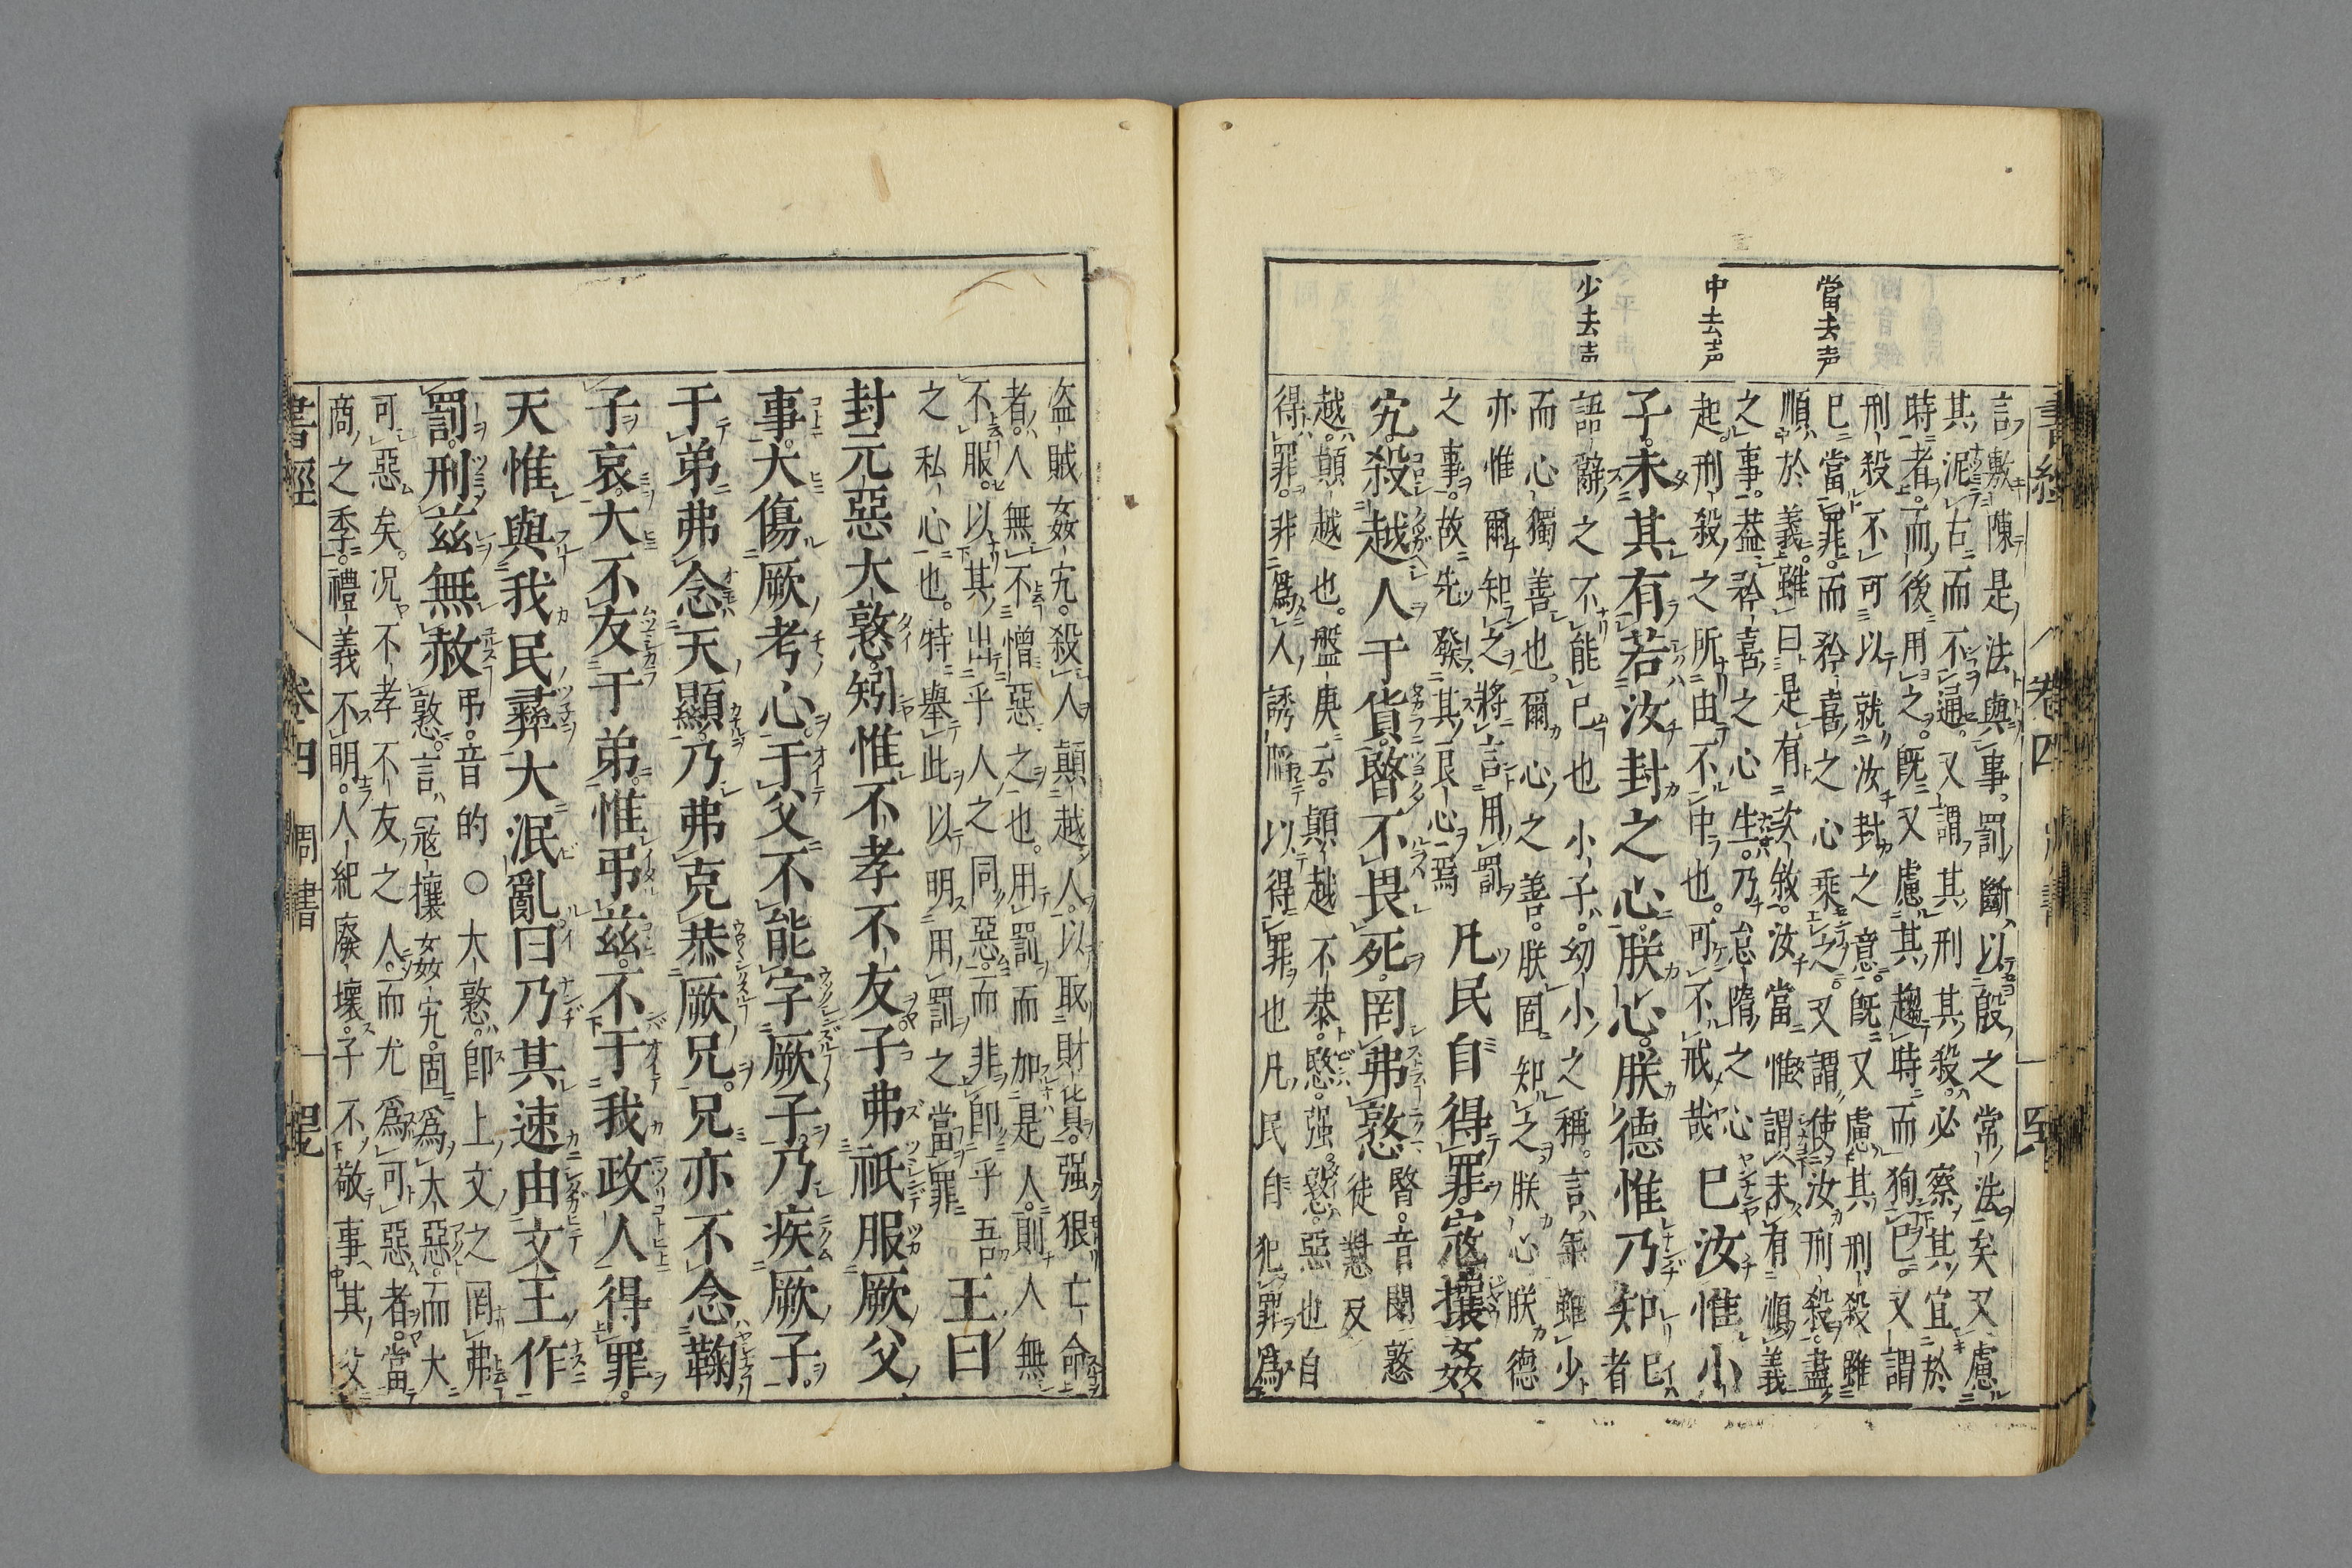 當去声
中去声
少去声
言敷陳是法與事罰斷以殷之常法矣又慮
其泥古而不通又謂其刑其殺必察其宜於
時者而後用之既又慮其趨時而狥己又謂
刑殺不可以就汝封之意既又慮其刑殺雖
已當罪而矜喜之心乗之又謂使汝刑殺盡
順於義雖曰是有次敘汝當惟謂未有順義
之事蓋矜喜之心生乃怠惰之心
起刑殺之所由不中也可不戒哉 已汝惟小
子未其有若汝封之心朕心朕德惟乃知 已者
語辭之不能已也小子幼小之稱言年雖少
而心獨善也爾心之善固朕知之朕心朕德
亦惟爾知之將言用罰
之事故先發其良心焉 凡民自得罪寇攘姦
宄殺越人于貨暋不畏死罔弗憝 暋音閔憝徒對反
越顛越也盤庚云顛越不恭暋强憝惡也自
得罪非爲人誘陷以得罪也凡民自犯罪爲
盗賊姦宄殺人顛越人以取財貨强狠亡命
者人無不憎惡之也用罰而加是人則人無
不服以其出乎人之同惡而非即乎吾
之私心也特舉此以明用罰之當罪 王曰
封元惡大憝矧惟不孝不友子弗祇服厥父
事大傷厥考心于父不能字厥子乃疾厥子
于弟弗念天顯乃弗克恭厥兄兄亦不念鞠
子哀大不友于弟惟弔茲不于我政人得罪
天惟與我民彝大泯亂曰乃其速由文王作
罰刑茲無赦 弔音的○大憝即上文之罔弗
憝言寇攘姦宄固爲大惡而大
可惡矣况不孝不友之人而尤爲可惡者當
商之季禮義不明人紀廢壞子不敬事其父
書經 卷四 周書